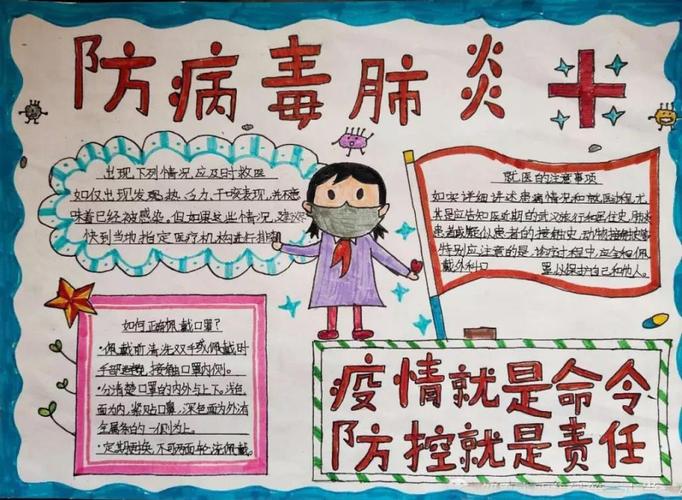 防病毒肺炎
出现下列情况,应及时救医
如仅出现发现热,乏力,干咳表现,并不意
味着已经被感染,但如果这些情况,建议尽
快到当地指定医疗机构进行排
就医的注意事项
如实详细讲述患病情况和就医过程尤
其是应告知医近期的武汉旅行和居住史,肺炎
患者或疑似患者的接触史,动物接触史等
特别应注意的是,诊疗过程中,应全程佩
戴外科口罩以保护自己和他人。
如何正确佩戴口罩?
·佩戴前清洗双手或佩戴时
手部避免,接触口罩内侧。
·分清楚口罩的内外与上下。浅色
面为内,紧贴口鼻,深色面为外,有
金属条的一侧为上。
·定期更换,不可两面轮流佩戴。
疫情就是命令
防控就是责任